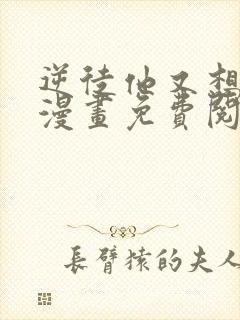 逆徒他又想
漫畫免費閱
長臂猿的夫人